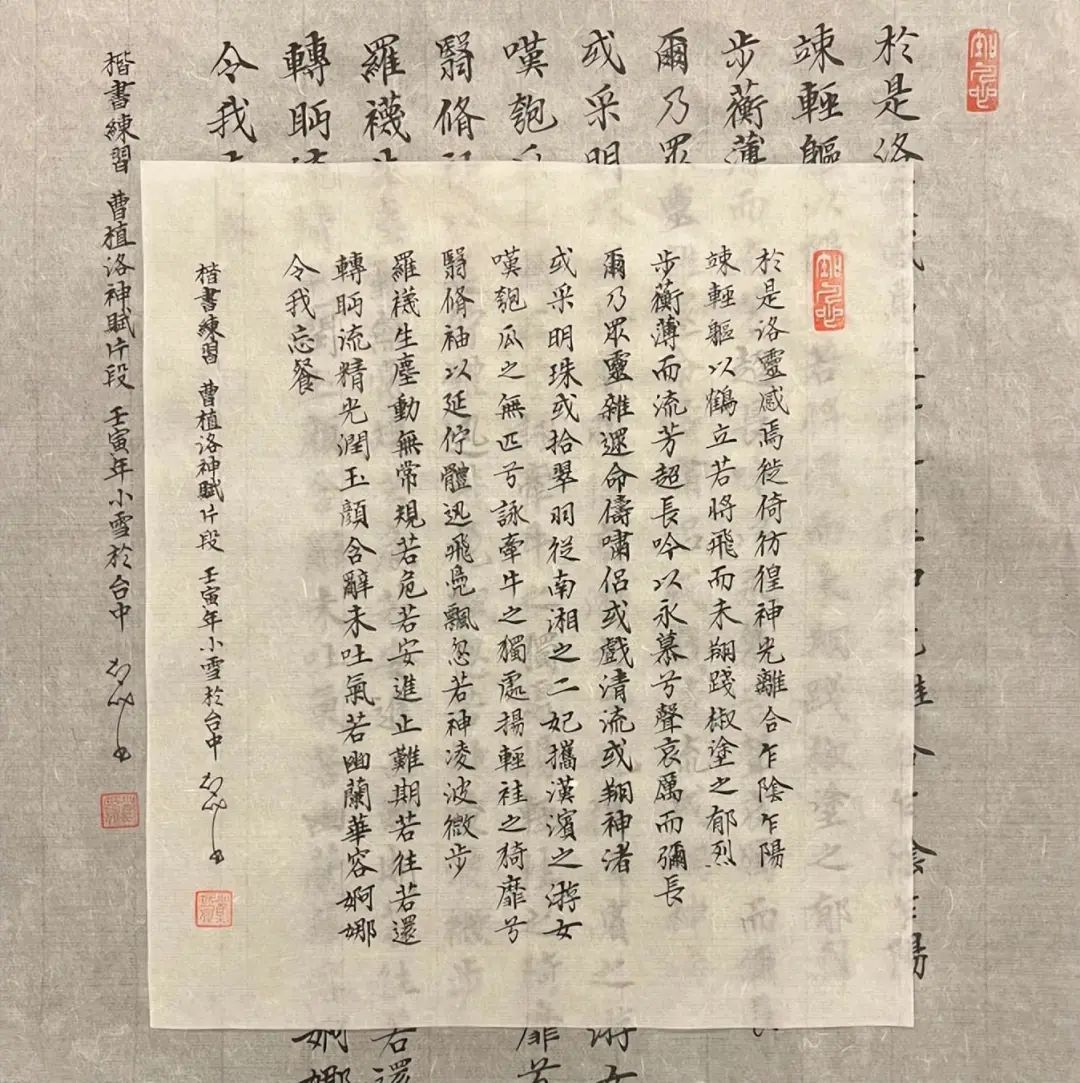 於是洛靈感焉徙倚彷徨神光離合乍陰乍陽
竦輕軀以鶴立若將飛而未翔踐椒塗之郁烈
步蘅薄而流芳超長吟以永慕兮聲哀厲而彌長
爾乃眾靈雜遝命儔嘯侶或戲清流或翔神渚
或采明珠或拾翠羽從南湘之二妃攜漢濱之游女
嘆匏瓜之無匹兮詠牽牛之獨處揚輕袿之猗靡兮
翳脩袖以延佇體迅飛鳧飄忽若神凌波微步
羅襪生塵動無常規若危若安進止難期若往若還
轉眄流精光潤玉顏含辭未吐氣若幽蘭華容婀娜
令我忘餐
楷書練習 曹植洛神賦片段 壬寅年小雪於台中
於是洛
竦輕軀
步蘅薄
爾乃眾
或采明
嘆匏瓜
翳脩
羅襪生
轉眄流
令我
楷書練習 曹植洛神賦片段 壬寅年小雪於台中